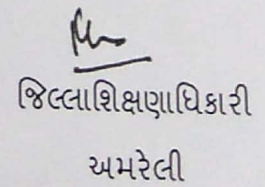 જિલ્લાશિક્ષણાધિકારી
અમરેલી